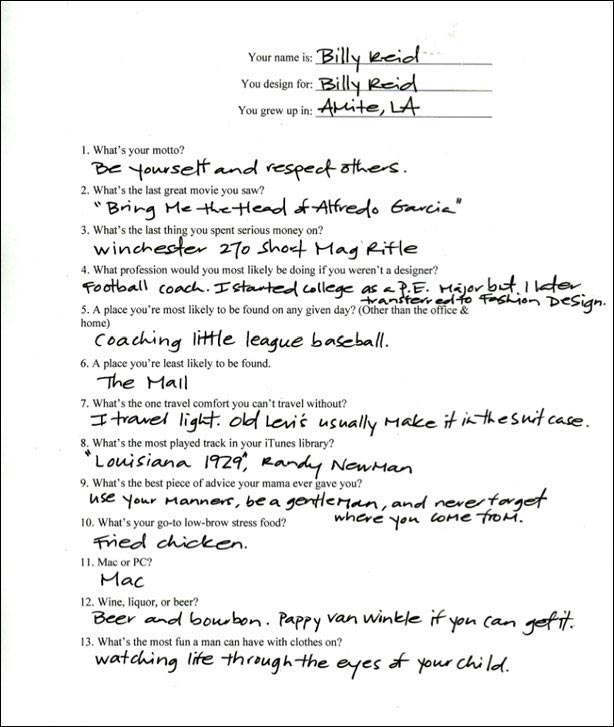 Your name is: Billy Reid
You design for: Billy Reid
You grew up in: Amite, LA
1. What's your motto?
Be yourself and respect others.
2. What's the last great movie you saw?
"Bring Me the Head of Alfredo Garcia"
3. What's the last thing you spent serious money on?
Winchester 270 Short Mag Rifle
4. What profession would you most likely be doing if you weren't a designer?
Football coach. I started college as a P.E. Major but I later
transferred to Fashion Design.
5. A place you're most likely to be found on any given day? (Other than the office &
home)
Coaching little league baseball.
6. A place you're least likely to be found.
The Mall
7. What's the one travel comfort you can't travel without?
I travel light. Old Levi's usually make it in the suitcase.
8. What's the most played track in your iTunes library?
"Louisiana 1929", Randy Newman
9. What's the best piece of advice your mama ever gave you?
Use your manners, be a gentleman, and never forget
where you come from.
10. What's your go-to low-brow stress food?
Fried chicken.
11. Mac or PC?
Mac
12. Wine, liquor, or beer?
Beer and bourbon. Pappy Van Winkle if you can get it.
13. What's the most fun a man can have with clothes on?
Watching life through the eyes of your child.